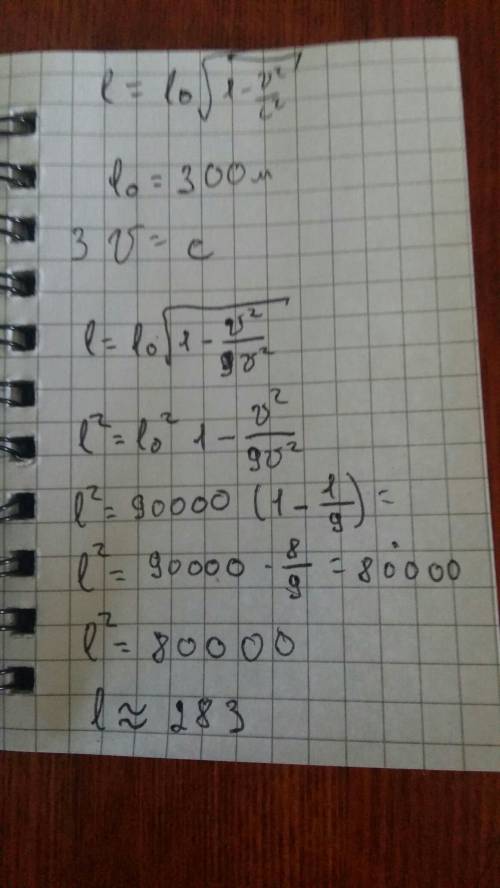 l = l₀√(1 - v²/c²)
l₀ = 300м
3 v = c
l = l₀√(1 - v²/9v²)
l² = l₀² 1 - v²/9v²
l² = 90000 (1 - 1/9) =
l² = 90000 · 8/9 = 80000
l² = 80000
l ≈ 283